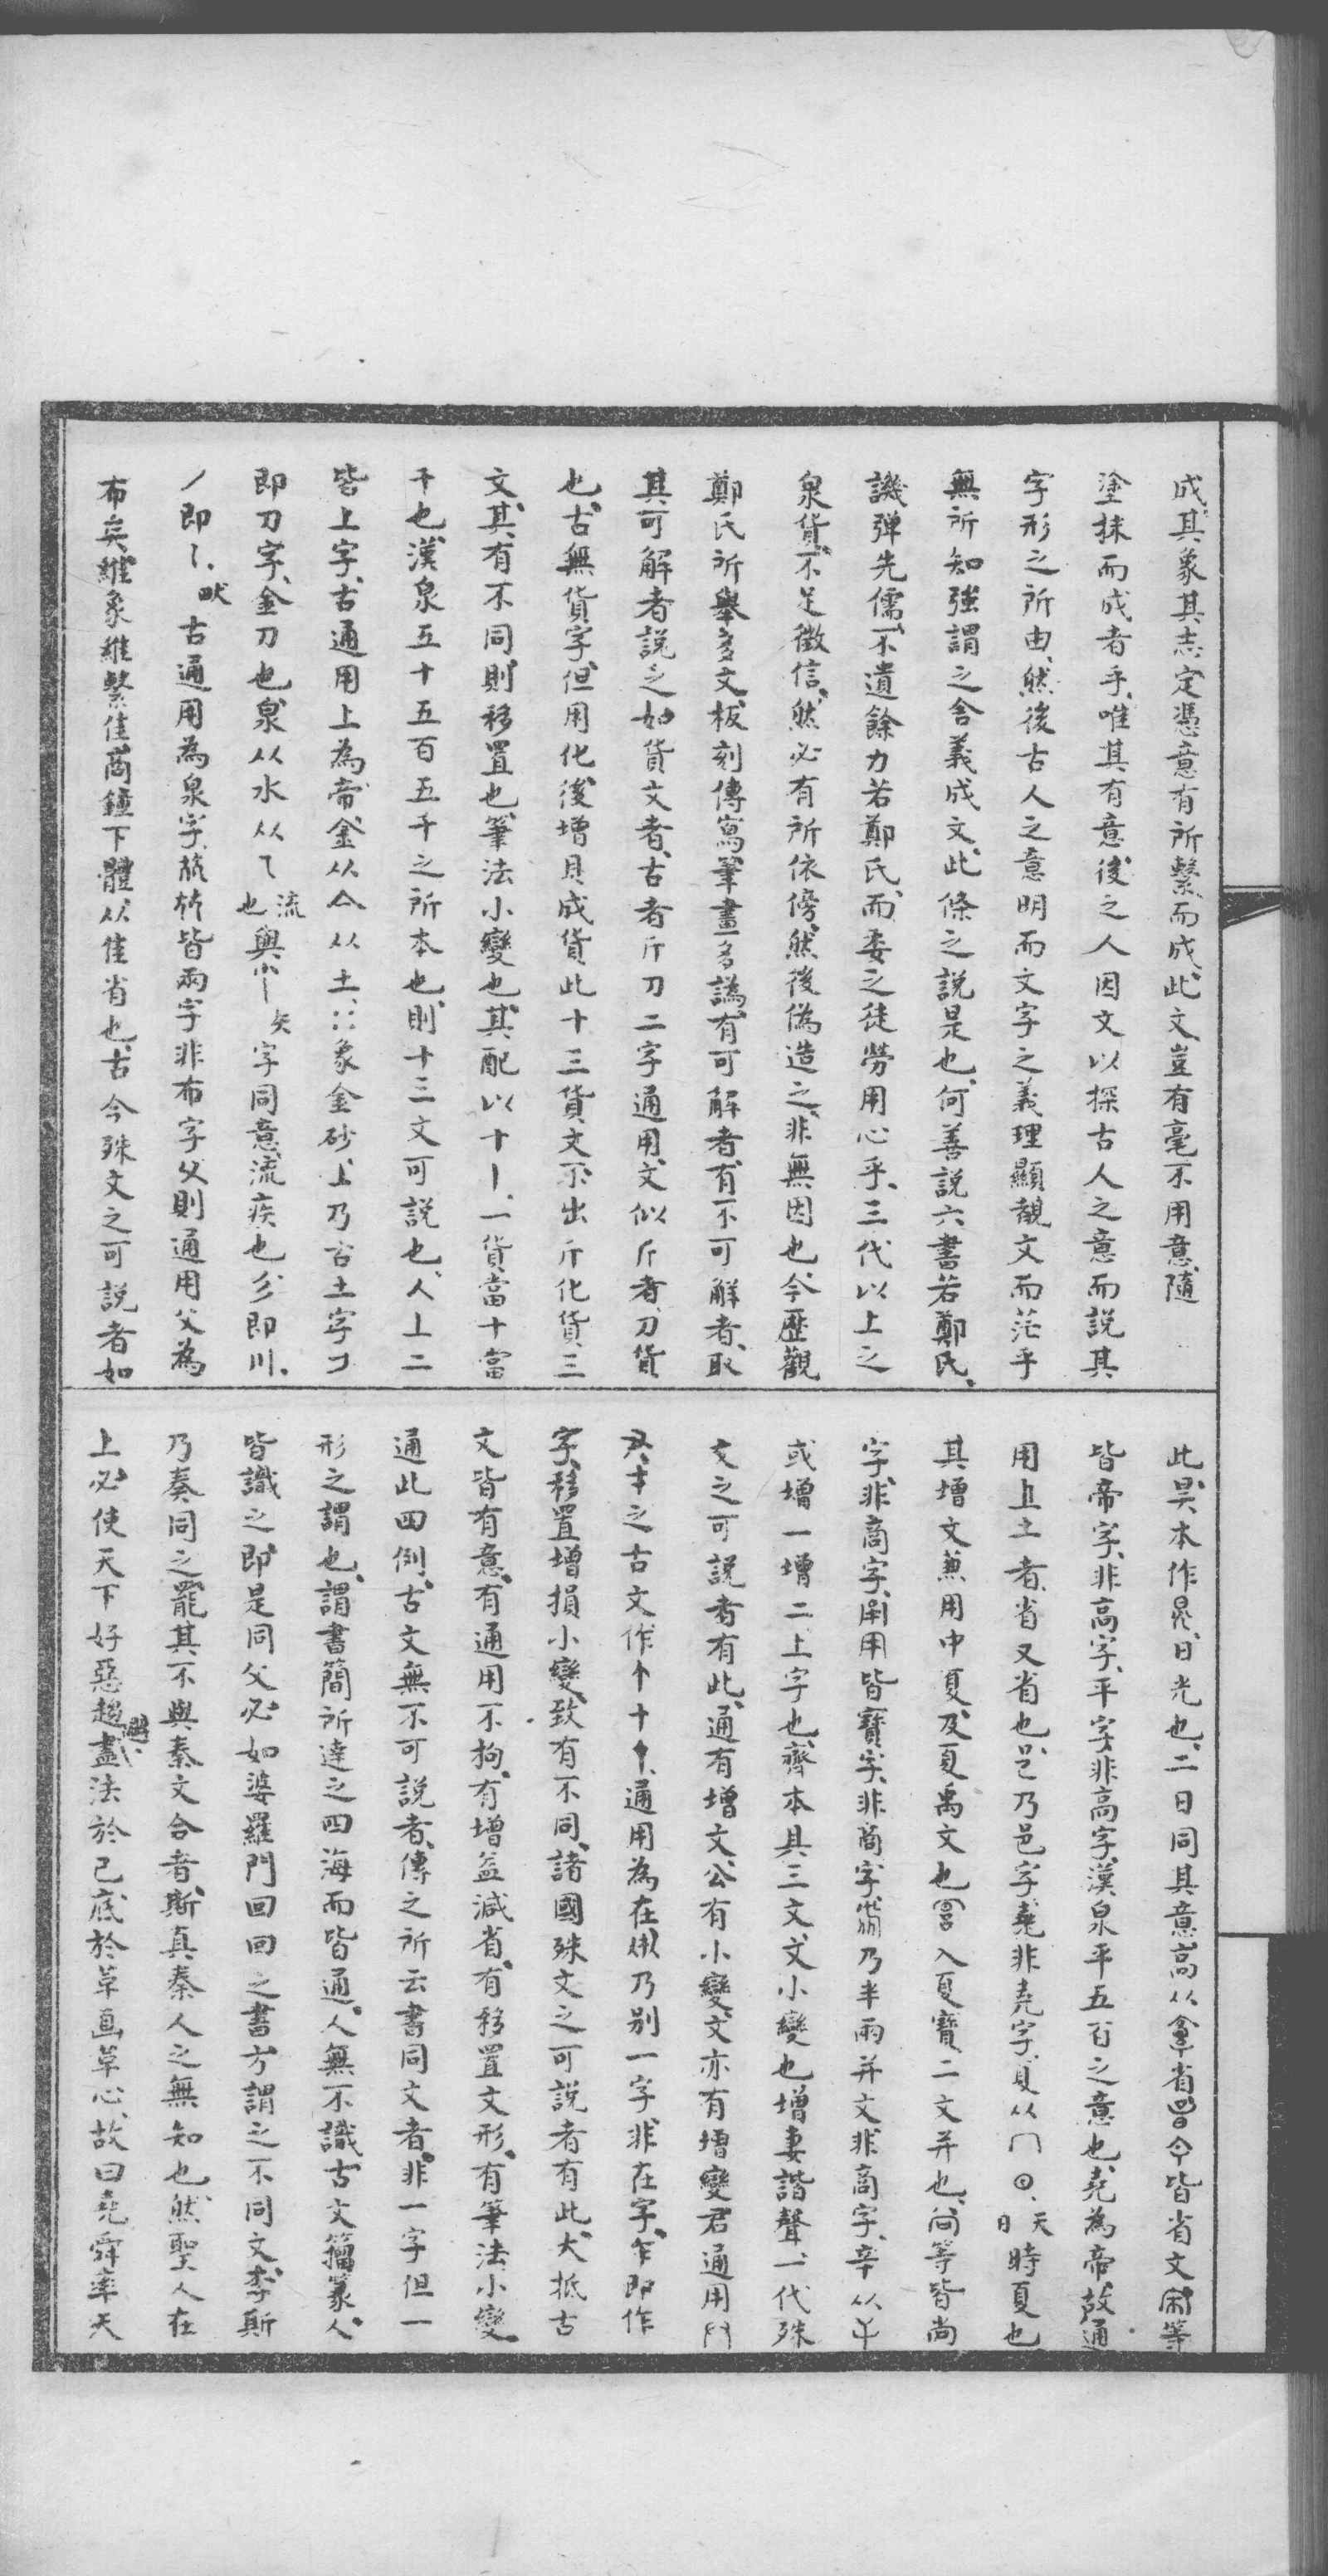 成、其象其志定憑意有所繫而成、此文豈有毫不用意、隨
塗抹而成者乎、唯其有意、後之人因文以探古人之意而說其
字形之所由、然後古人之意明而文字之義理顯、覩文而茫乎
無所知、強謂之含義成文、此條之說是也、何善說六書若鄭氏、
譏彈先儒、不遺餘力若鄭氏、而委之徒勞用心乎、三代以上之
泉貨、不足徵信、然必有所依傍、然後偽造之、非無因也、今歷觀
鄭氏所舉多文、板刻傳寫筆畫多譌、有可解者、有不可解者、取
其可解者說之、如貨文者、古者斤刀二字通用、文似斤者、刀貨
也、古無貨字、但用化、後增貝成貨、此十三貨、文不出斤化貨三
文、其有不同、則移置也、筆法小變也、其配以十丨、一貨當十當
千也、漢泉五十五百五千之所本也、則十三文可說也、人丄二
皆上字、古通用上為帝、金从亼从土、∷象金砂、丄乃古土字、
即刀字、金刀也、泉从水从乁流也、與矢字同意、流疾也、彡即川、
丿即丨、畎古通用為泉字、皆兩字、非布字、父則通用父為
布矣、維象維繫隹、商鐘下體从隹省也、古今殊文之可說者如
此、昊本作、日光也、二日同其意、高从省、皆省文、等
皆帝字、非高字、平字、非高字、漢泉平五百之意也、堯為帝、故通
用丄土者、省又省也、邑乃邑字、堯非堯字、夏从冂⊙、天日時夏也
其增文兼用中夏、及夏禹文也、入夏寶二文并也、等皆尚
字、非商字、用皆寶字、非商字、乃半兩并文、非商字、辛从
或增一增二、上字也、齊本具三文、文小變也、增妻諧聲、一代殊
文之可說者有此、通有增文、公有小變、文亦有增變、君通用
之古文作通用為在、乃別一字、非在字、乍即作
字、移置增損小變、致有不同、諸國殊文之可說者有此、大抵古
文皆有意、有通用不拘、有增益減省、有移置文形、有筆法小變、
通此四例、古文無不可說者、傳之所云書同文者、非一字但一
形之謂也、謂書簡所達之四海而皆通、人無不識、古文籀篆、人
皆識之、即是同父、必如婆羅門回回之書、方謂之不同文、李斯
乃奏同之、罷其不與秦文合者、斯真秦人之無知也、然聖人在
上、必使天下好惡盡法於己、底於草畫草心、故曰堯舜率天